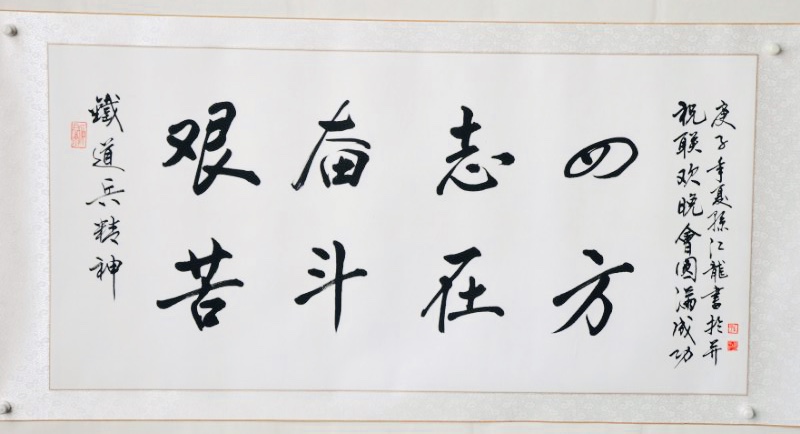 鐵道兵精神
艰苦
奋斗
志在
四方
祝联欢晚會圆满成功
庚子年夏孫江龍書於并